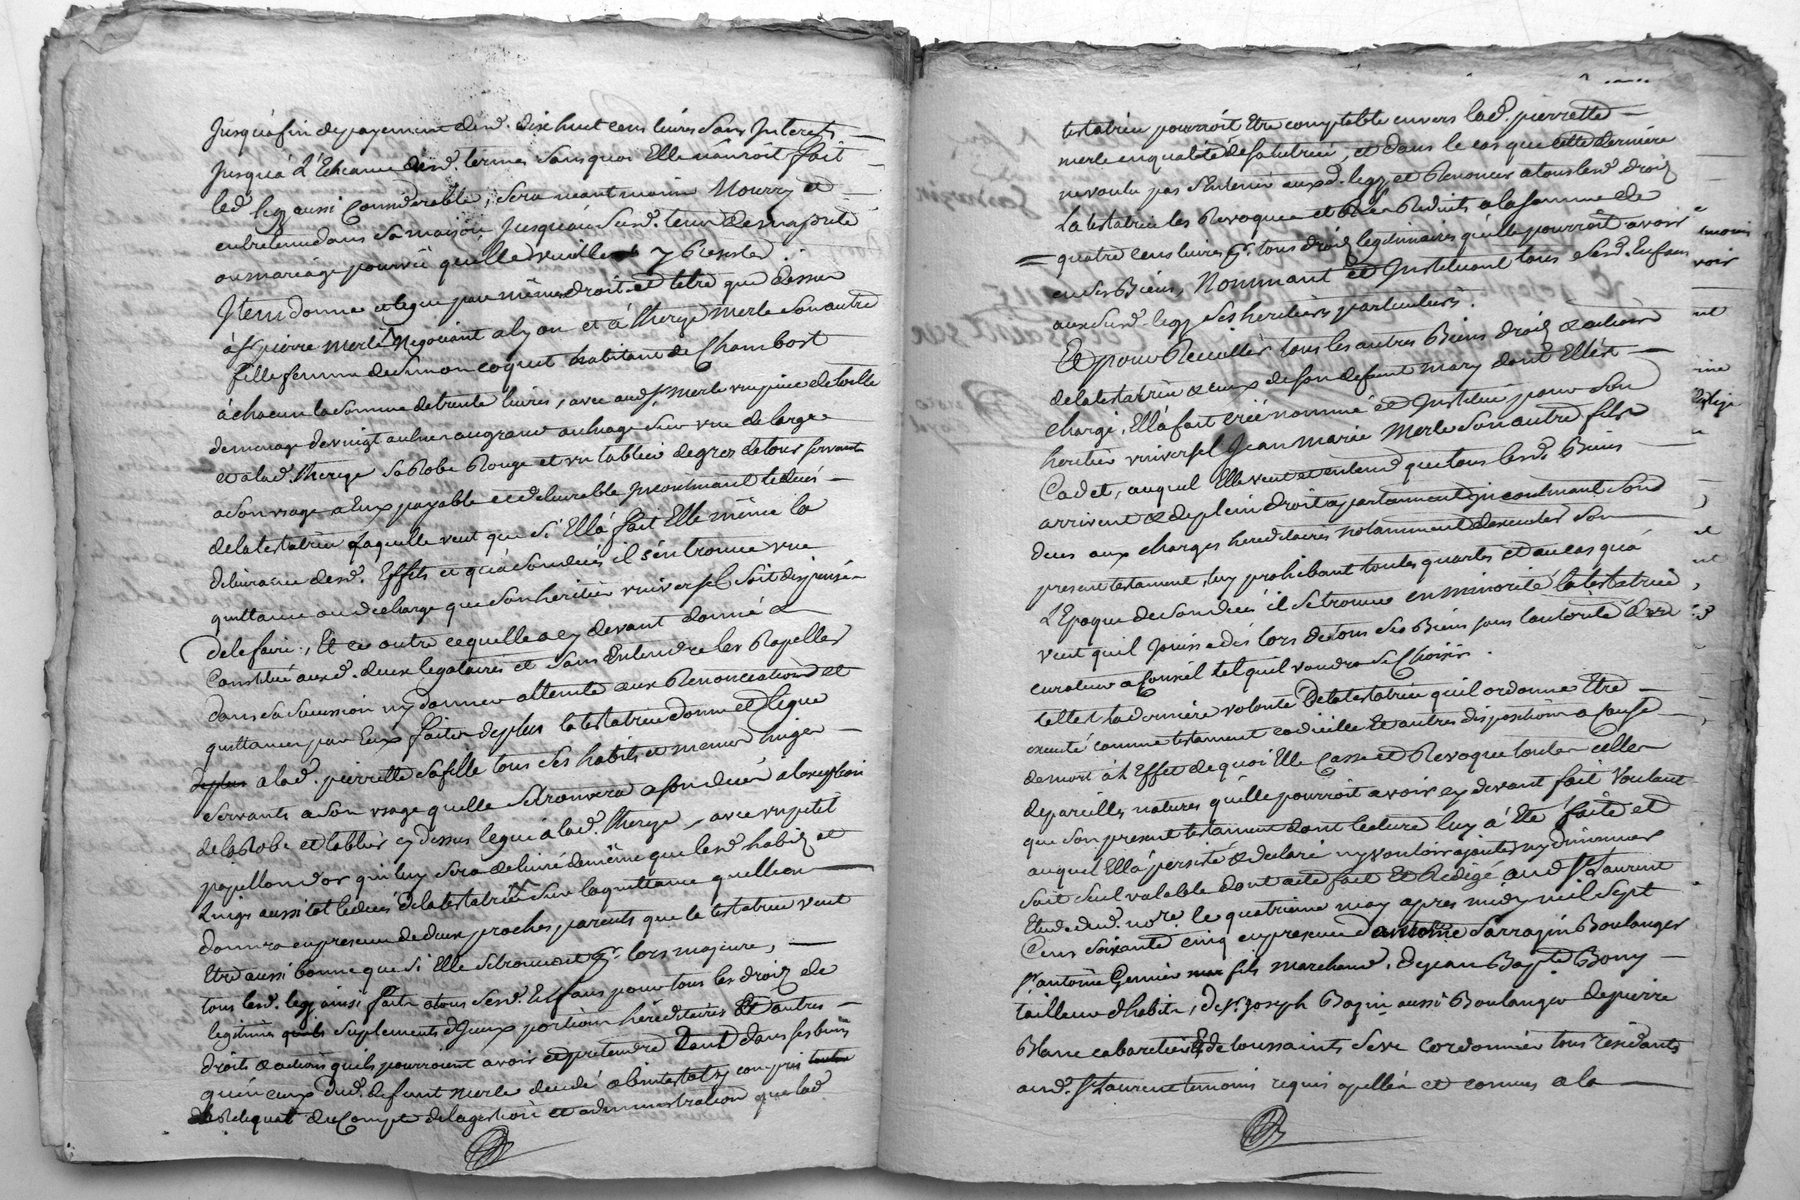 Jusqu'afin de payement desd. dixhuit cens livres Sans Interets
Jusqu'a L'Echeance desd. termes Sans quoi Elle n'auroit fait
led. legz aussi Considerable, Sera neant moins Nourry et
entretenu dans Sa maison Jusqu'au Susd. tems
ou mariage pourvû quelle veuille y Rester.
Item donne et legue par mêmes droits et titre que dessus
à Sr. pierre merle Negotiant a lyon et à Thereze merle Son autre
fille femme de Simon coquet habitant de Chambost
à chacun la Somme de trente livres, avec aud. Sr. merle une piece de toille
de menage de vingt aulnes au grand aulnage Sur une de large
et a lad. Thereze Sa Robe Rouge et un tablier de grez de tour servants
a Son usage a Eux payable et delivrable Incontinant le décés
de la testatrice laquelle veut que Si Ell'à fait Elle même la
delivrance desd. Effets et qu'a Son décés il S'en trouve une
quittance ou decharge que Son heritier universel Soit dispensé
de le faire, Et ce outre ce quelle a cy devant donné et
Constitué auxd. deux legataires et Sans Entendre les Rapeller
dans Sa Succession ny donner atteinte aux Renonciations et
quittances par Eux faites de plus la testatrice donne et legue
de plus a lad. pierrette Sa fille tous Ses habits et menus linges
Servants a Son usage quelle Se trouvera a Son décés a l'exception
de la Robe et tablier cy dessus legué à lad. Thereze, avec un petit
papillon d'or qui luy Sera delivré de même que lesd. habits et
Linges aussitot le décés de la testatrice Sur la quittance quelle en
donnera en presence de deux proches parents que la testatrice veut
Etre aussi bonne que Si Elle Se trouvoit pr. lors majeure,
tous lesd. legz ainsi faits a tous Sesd. Enfans pour tous les droits de
legitime Suplements d'Iceux portions héréditaires et autres
droits et actions quils pourroient avoir et pretendre tant dans Ses biens
qu'en ceux dud. defunt merle décedé abintestat y compris
le Reliquat du Compte de la gestion et administration que lad.
testatrice pourroit Etre comptable envers lad. pierrette
merle en qualité de Sa tutrice, et dans le cas que cette derniere
ne voulu pas S'entenir auxd. legz et Renoncer a tous lesd. droits
La testatrice les Revoque et les Reduits a la Somme de
quatre cens livres pr. tous droits legitimaires qu'elle pourroit avoir
en Ses Biens, Nommant et Instituant tous Sesd. Enfans
aux Susd. legz Ses heritiers particuliers.
Et pour Recuillir tous les autres Biens droits et actions
de la testatrice et ceux de Son defunt mary dont Ell'est
chargé, Ell'à fait créé nommé et Institué pour Son
heritier universel Jean Marie Merle Son autre fils
Cadet, auquel Elle veut et entend que tous lesd. Biens
arrivent et de plein droit apartiennent Incontinant Son d
deces aux charges hereditaires notamment d'executer Son
present testament, luy prohibant toutes quartes et au cas qu'à
L'Epoque de Son décés il Se trouve en minorité la testatrice
veut qu'il Jouisse dés lors de tous Ses Biens Sous l'autorité d'un
curateur a Conseil tel quil voudra Se Choisir.
telle est la derniere volonté De la testatrice quil ordonne Etre
executé comme testament codicille Et autres dispositions a Cause
de mort à L'Effet de quoi Elle Casse et Revoque toutes celles
de pareilles natures qu'elle pourroit avoir cy devant fait Voulant
que Son present testament dont lecture luy à Eté faite et
auquel Ell'à persisté et declaré ny vouloir ajouter ny diminuer
Soit Seul valable dont acte fait Et Redigé aud. St. Laurent
Etude dud. nore. le quatrieme may apres midy mil Sept
Cens Soixante cinq en presence d'antoine Sarragin Boulanger
Sr. antoine fils marchand, de Jean Bapte. Bony
tailleur d'habits, de Sr. Joseph Bazin aussi Boulanger de pierre
Blanc cabaretier & de toussaints Seve cordonnier tous residants
aud. St. Laurent temoins requis apellés et connus a la